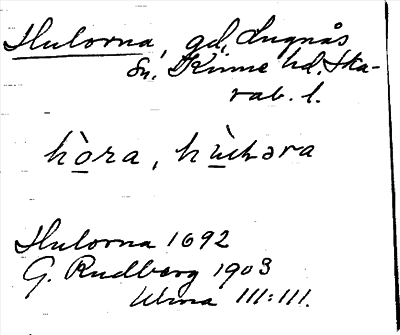 Hulorna, gd, Lugnås
sn, Kinne hd, Ska-
rab. l.
hòra,
Hulorna 1692
G. Rudberg 1903
III:III.